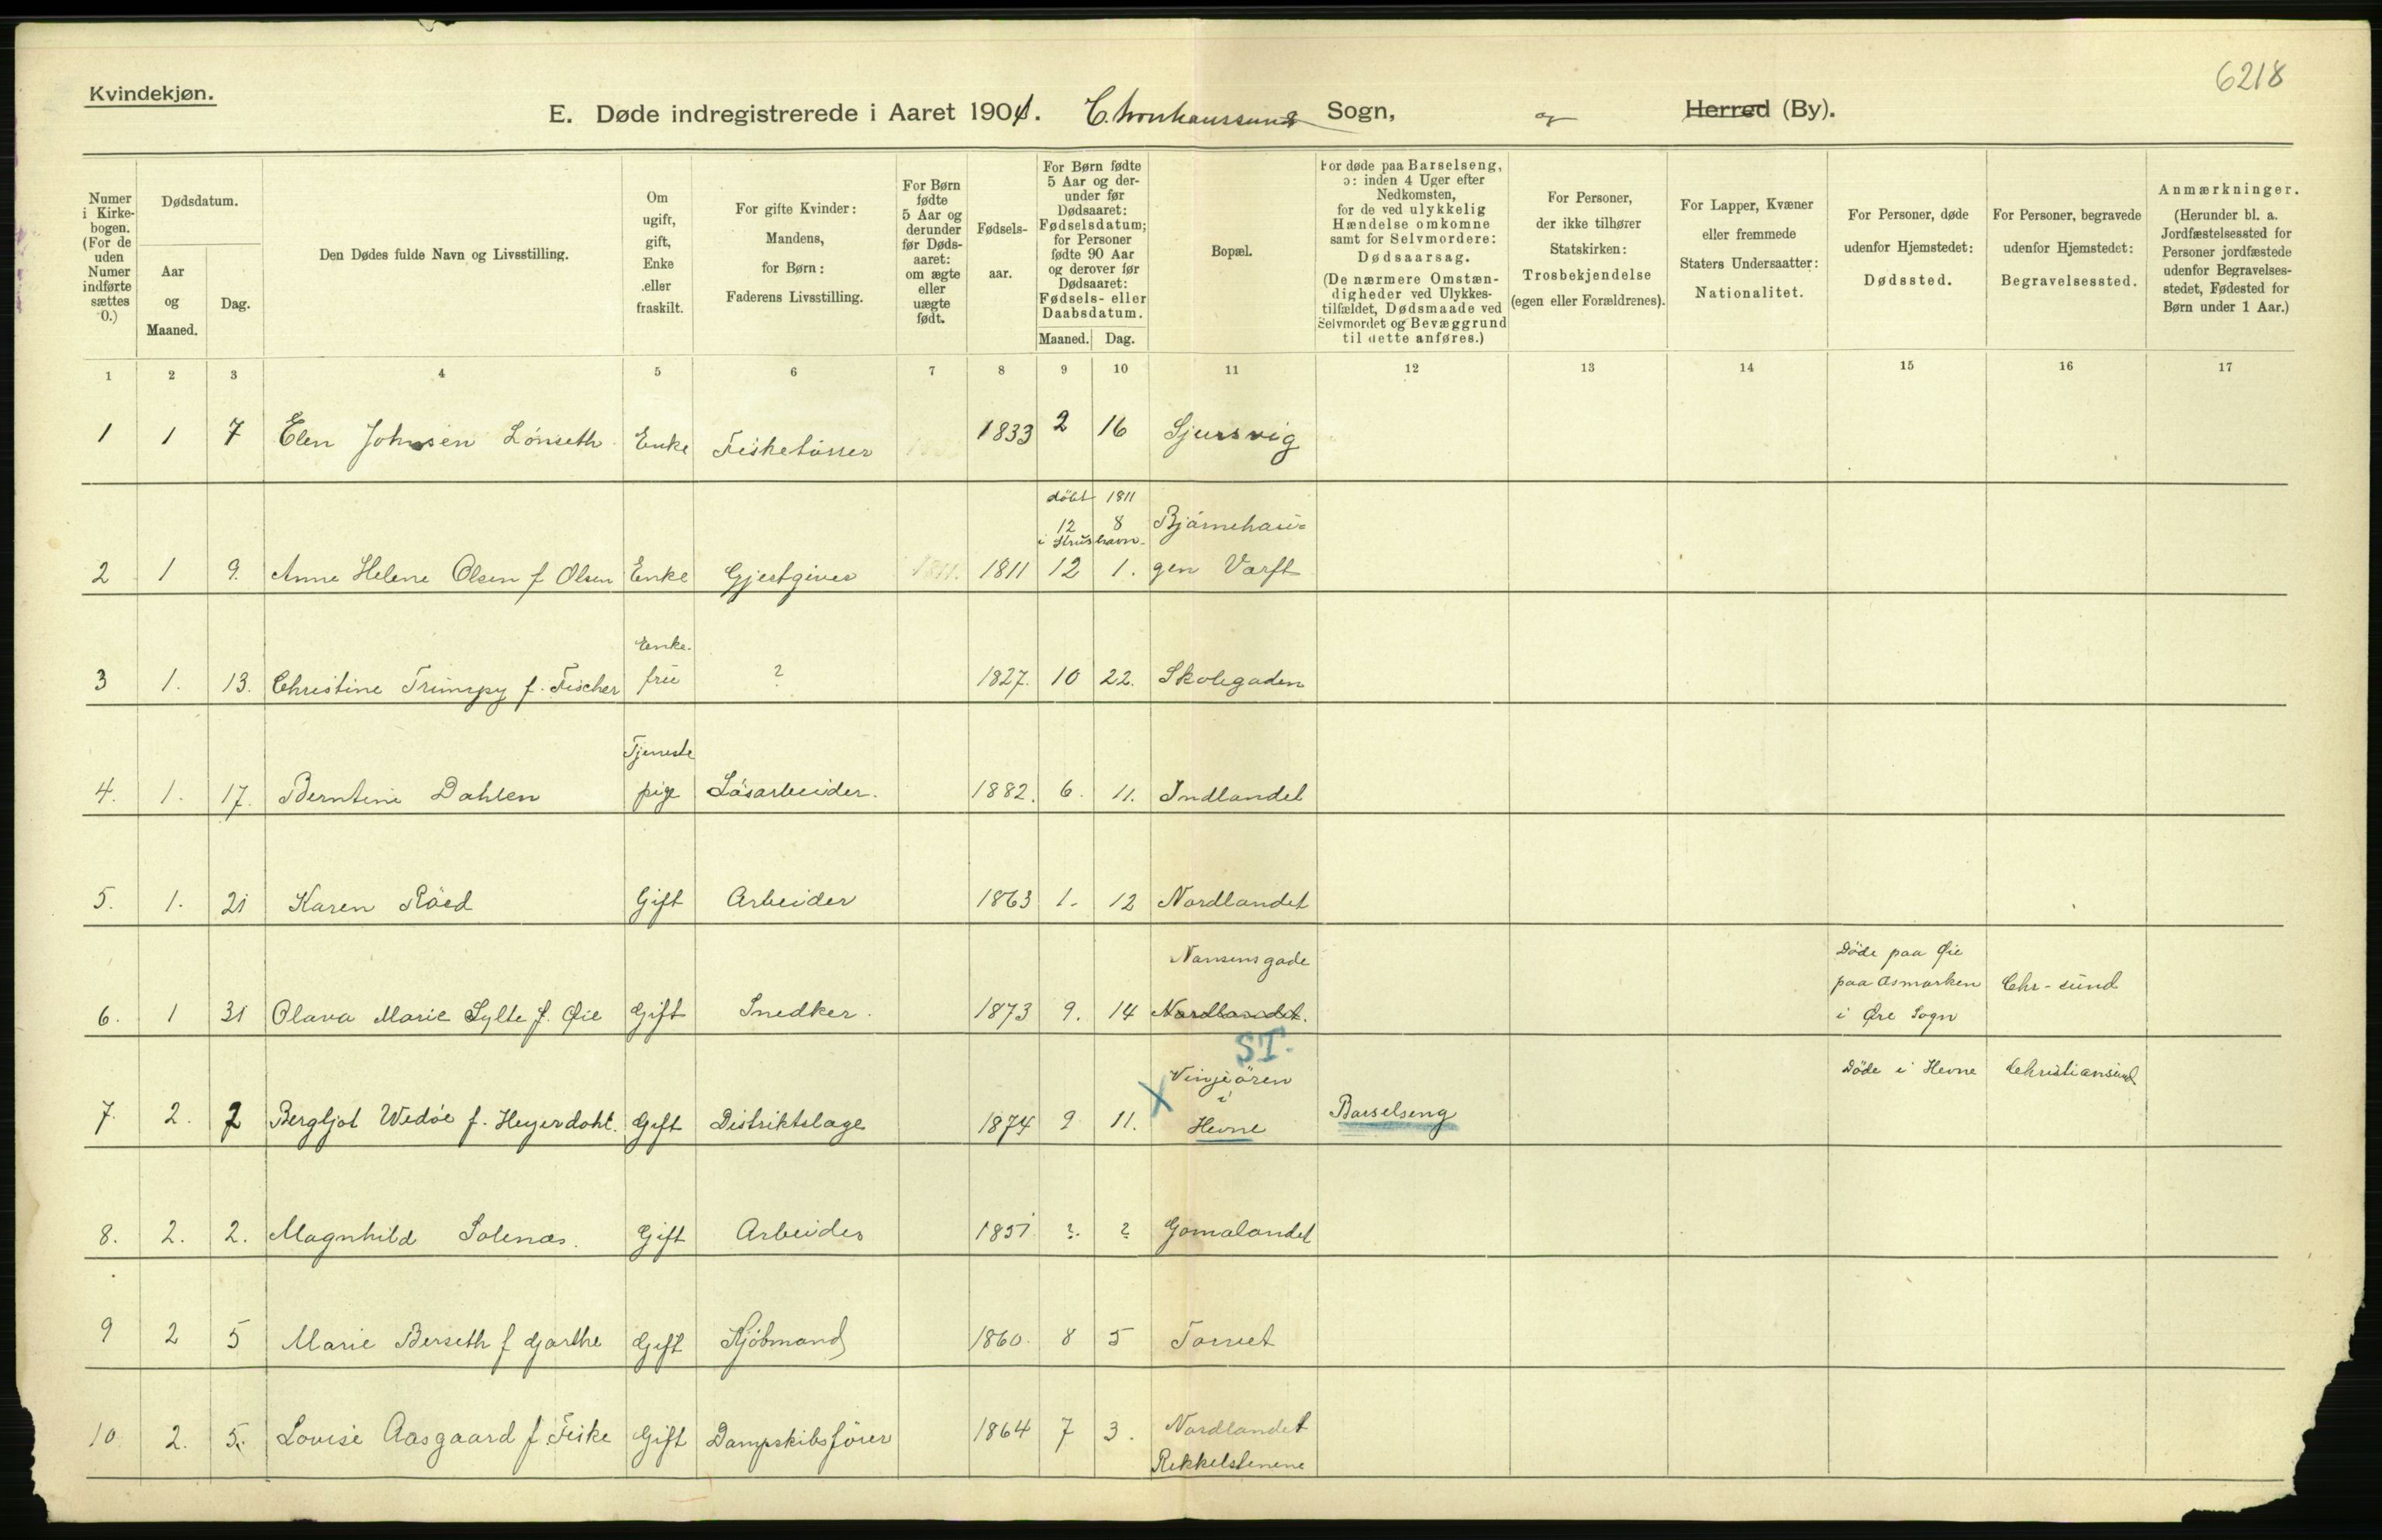 6218
Kvindekjøn.
E. Døde indregistrerede i Aaret 1904. Sogn, og Herred (By).
Numer i Kirkebogen. (For de uden Numer indførte sættes 0.)
Dødsdatum.
Aar og Maaned.
Dag.
Den Dødes fulde Navn og Livsstilling.
Om ugift, gift, Enke eller fraskilt.
For gifte Kvinder: Mandens, for Børn: Faderens Livsstilling.
For Børn fødte 5 Aar og derunder før Dødsaaret: om ægte eller uægte født.
Fødselsaar.
For Børn fødte 5 Aar og derunder før Dødsaaret: Fødselsdatum; for Personer fødte 90 Aar og derover før Dødsaaret: Fødsels- eller Daabsdatum.
Maaned. Dag.
Bopæl.
For døde paa Barselseng, ɔ: inden 4 Uger efter Nedkomsten, for de ved ulykkelig Hændelse omkomne samt for Selvmordere: Dødsaarsag.
(De nærmere Omstændigheder ved Ulykkestilfældet, Dødsmaade ved Selvmordet og Bevæggrund til dette anføres.)
For Personer, der ikke tilhører Statskirken: Trosbekjendelse (egen eller Forældrenes).
For Lapper, Kvæner eller fremmede Staters Undersaatter: Nationalitet.
For Personer, døde udenfor Hjemstedet: Dødssted.
For Personer, begravede udenfor Hjemstedet: Begravelsessted.
Anmærkninger. (Herunder bl. a. Jordfæstelsessted for Personer jordfæstede udenfor Begravelsesstedet, Fødested for Børn under 1 Aar.)
1 2 3 4 5 6 7 8 9 10 11 12 13 14 15 16 17
1 1 7 Elen Johnsen Lønseth Enke 1833 2 16 Sjursvig
døbt 1811
12 8 Bjørnehau=
i
2 1 9. Anne Helene Olsen f. Olsen Enke Gjestgiver 1811 12 1. gen Varft
Enke.
3 1. 13. Christine Trümpy f. Fischer frü ? 1827. 10 22. Skolegaden
Tjeneste
4. 1. 17. Berntine Dahlen pige Løsarbeider. 1882. 6. 11. Indlandet
5. 1. 21 Karen Røed Gift Arbeider 1863 1. 12 Nordlandet
Nansensgade Døde paa Øie
paa Asmarken Chr-sund
6. 1 31 Olava Marie Sylte f. Øie Gift Snedker. 1873 9. 14 Nordlandet. i Øre Sogn
ST.
X Vinjeøren Døde i Hevne Christiansund
i
7. 2. 2 Bergljot Wedøe f. Heyerdahl. Gift Distriktslæge 1874 9 11. Hevne Barselseng
8. 2. 2. Magnhild Solenæs. Gift Arbeider 1851 ?. ? Gomalandet
9 2 5 Marie Berseth f Gjørthe Gift Kjøbmand 1860. 8 5 Torvet
10 2. 5. Lovise Aasgaard f. Fiske Gift Dampskibsfører 1864 7 3. Nordlandet
Rekkelstenene